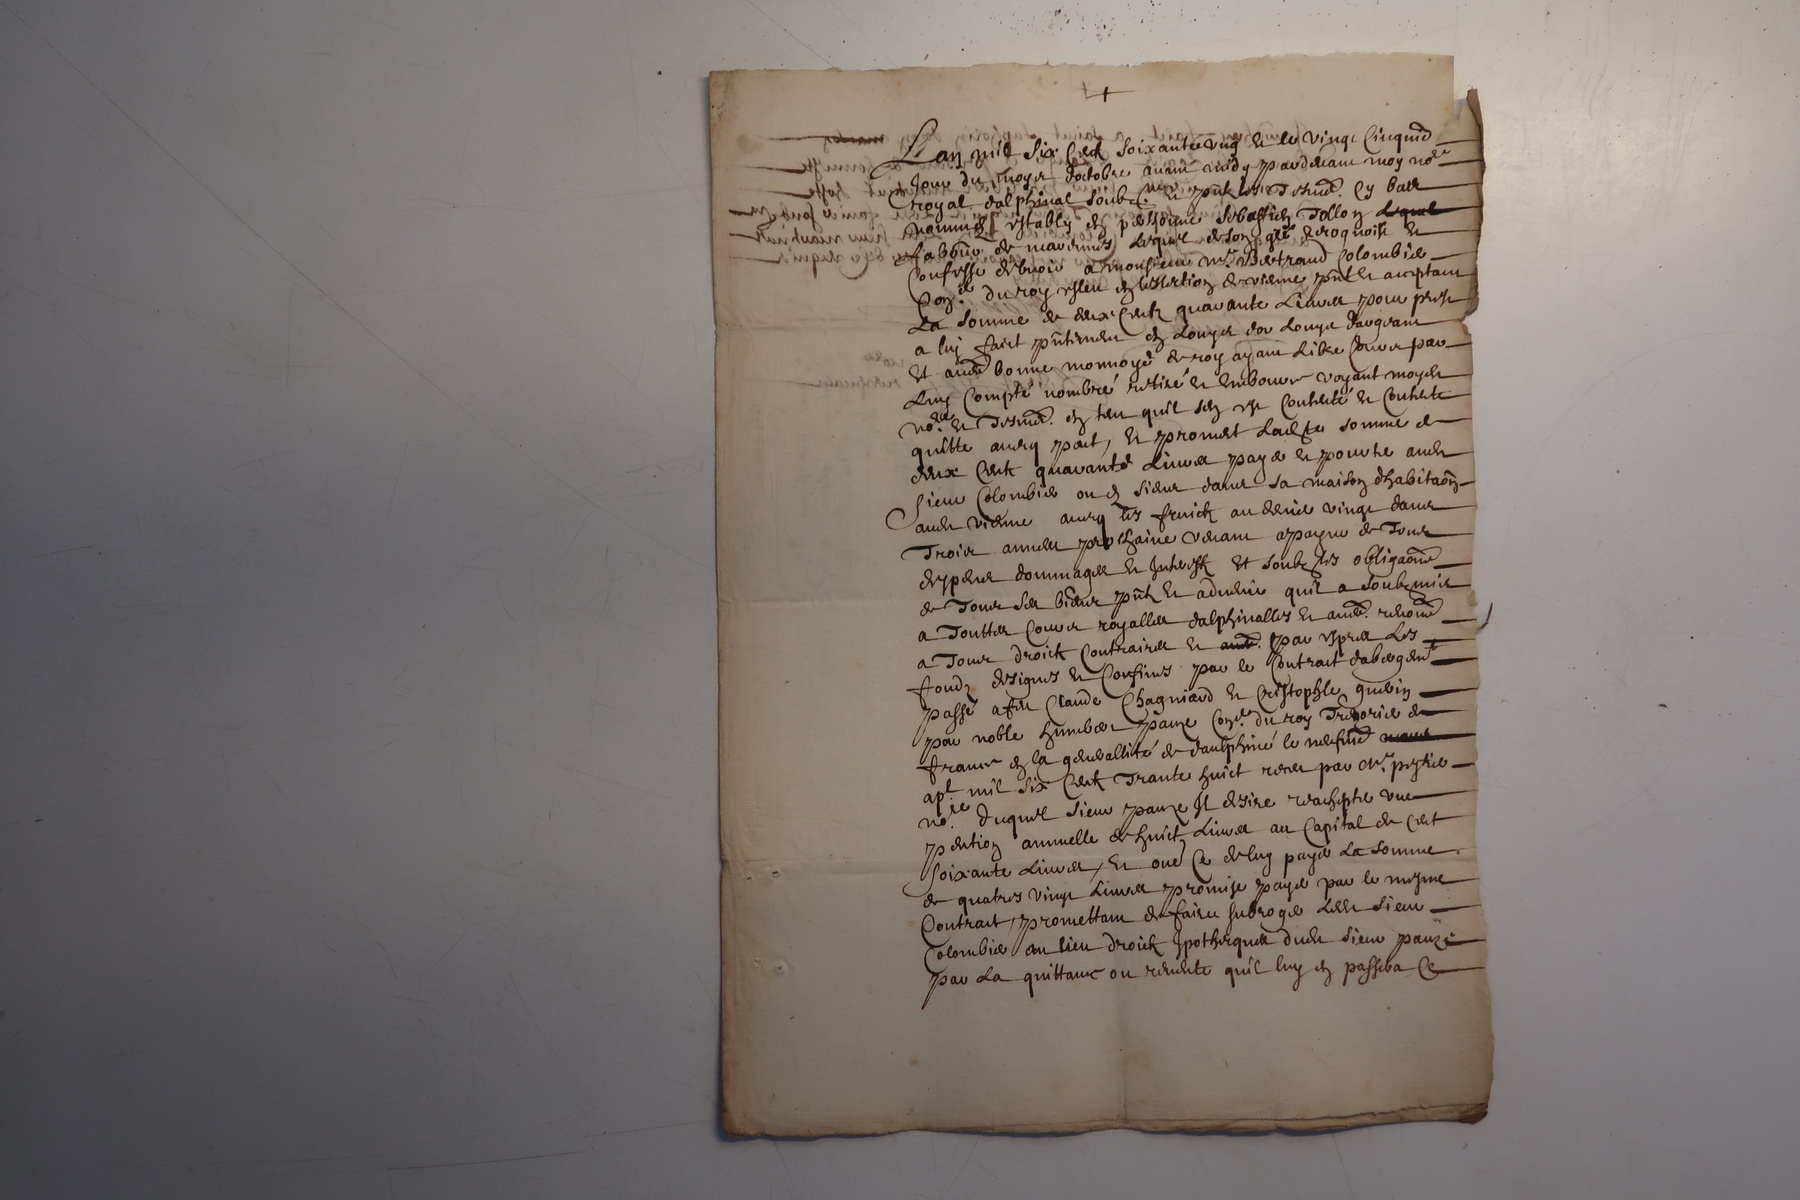 Lan mil six Cent Soixante ung et le vingt Cinquie
Jour du moys doctobre avant midy pardevant moy nore
royal dalphinal soubzne et pnt les tesmes cy bas
nommes estably en personne Sebastien Tollon lequel
de son gre recognoist et
Confesse debvoir a monsieur mr Bertrand Colombier
Conr du roy esleu en lellection de vienne pnt et acceptant
La somme de deux Cents quarante Livres pour prest
a luy faict pntement en Louys dor Louys dargent
Et autre bonne monnoye de roy ayant Libre Cours par
Luy Compte nombre retire et Embource voyant moyd
nore et Tesmes en teu quil sen est Contente et Contente
quitte avecq pact, et promet Ladte somme de
deux Cents quarante Livres payer et pourter audt
sieur Colombier ou es siens dans sa maison dhabitaon
audt vienne avecq les fruicts au denier vingt dans
Trois annees prochaine venant a payne de Tous
despens dommages et Interests Et soubz les obligaons
de Tous ses biens pnts et advenir quil a soubzmis
a Touttes Cours royalles dalphinalles et autres renon
a Tous droicts Contraires et par expres Les
fondz designes et Confines par le Contract dabergemt
passe a feu Claude Chagniard et Cristophle guerin
par noble humbert panze Conr du roy Tresorier de
france en la generallite de daulphine le neufvie
apl mil six Cents Trante huict receu par Mr
nore Duquel sieur panze Il desire reachepter une
pention annuelle de huict Livres au Capital de Cent
soixante Livres, Et oue Ce de luy payer La somme
de quatres vingt Livres promise payer par le mesme
Contract, promettant de faire subroger Ledt sieur
Colombier au lieu droicts Ipotheques dudt sieur panze
par La quittance ou revente quil luy en passera Ce